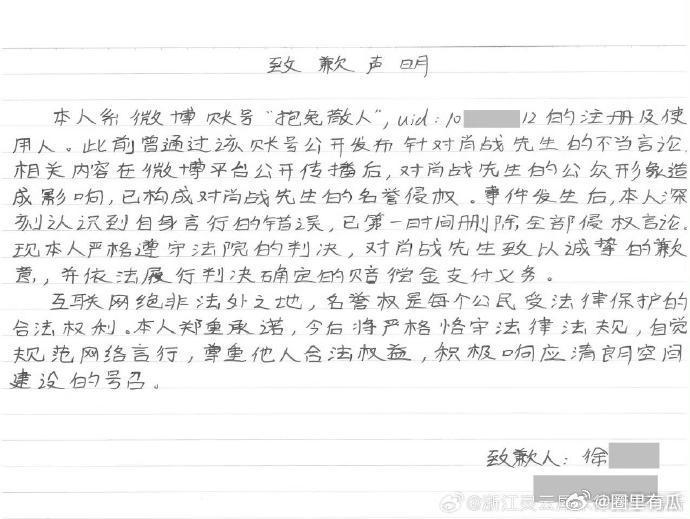 致歉声明
本人系微博账号“抱兔散人”,uid:10 12的注册及使
用人。此前曾通过该账号公开发布针对肖战先生的不当言论,
相关内容在微博平台公开传播后,对肖战先生的公众形象造
成影响,已构成对肖战先生的名誉侵权。事件发生后,本人深
刻认识到自身言行的错误,已第一时间删除全部侵权言论。
现本人严格遵守法院的判决,对肖战先生致以诚挚的歉
意,并依法履行判决确定的赔偿金支付义务。
互联网络非法外之地,名誉权是每个公民受法律保护的
合法权利。本人郑重承诺,今后将严格恪守法律法规,自觉
规范网络言行,尊重他人合法权益,积极响应清朗空间
建设的号召。
致歉人:徐
@浙江灵云
@圈里有瓜